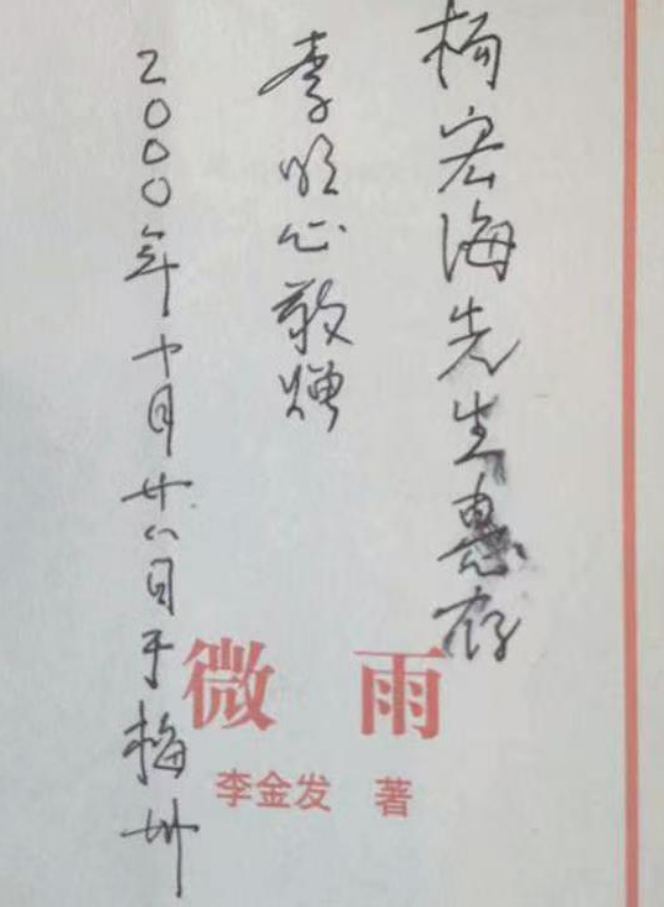 杨宏海先生惠存
李明心敬赠
2000年十月廿八日于梅州
微雨
李金发 著